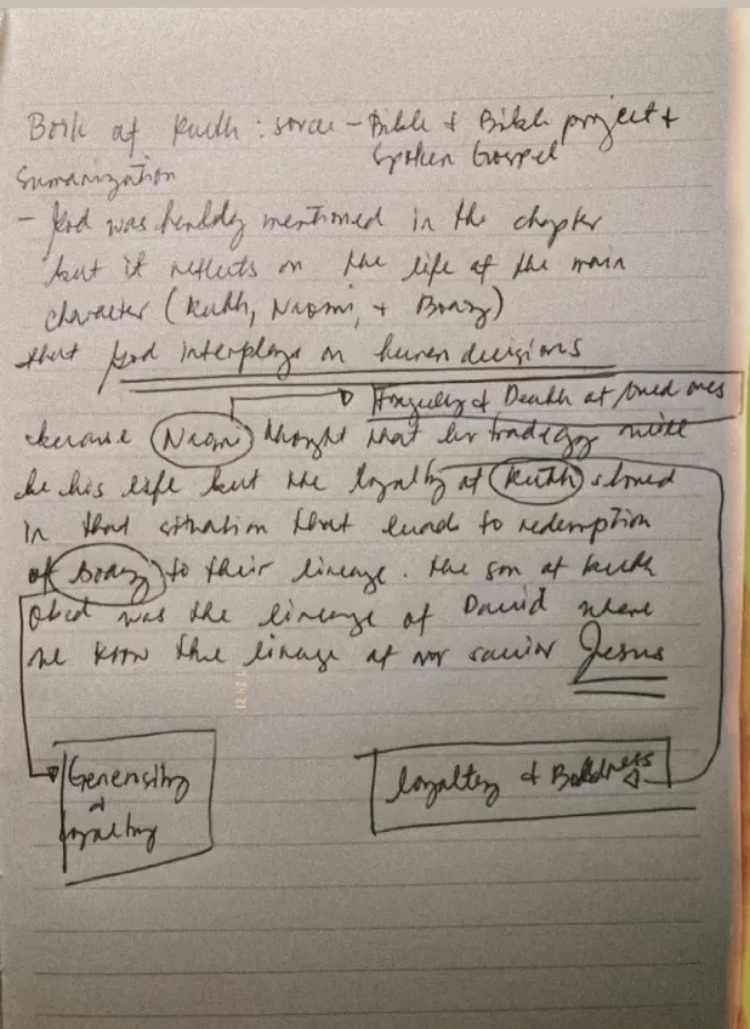 Book of Ruth : sorce - Bible & Bible project &
Spoken Gospel
Sumarization
- God was hardly mentioned in the chapter
but it reflects on the life of the main
character (Ruth, Naomi, & Boaz)
that God interplays on human decisions
& Death of loved ones
because Naomi thought that her tradegy will
be his life but the loyalty of Ruth stored
in that situation that leads to redemption
of Boaz to their lineage. the son of Ruth
Obed was the lineage of David where
we know the linage of our savior Jesus
Generosity
&
loyaltey
loyaltey & Boldness